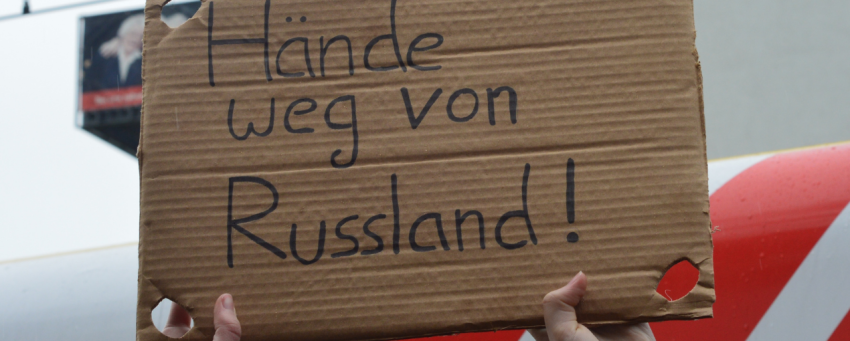 Hände
weg von
Russland!